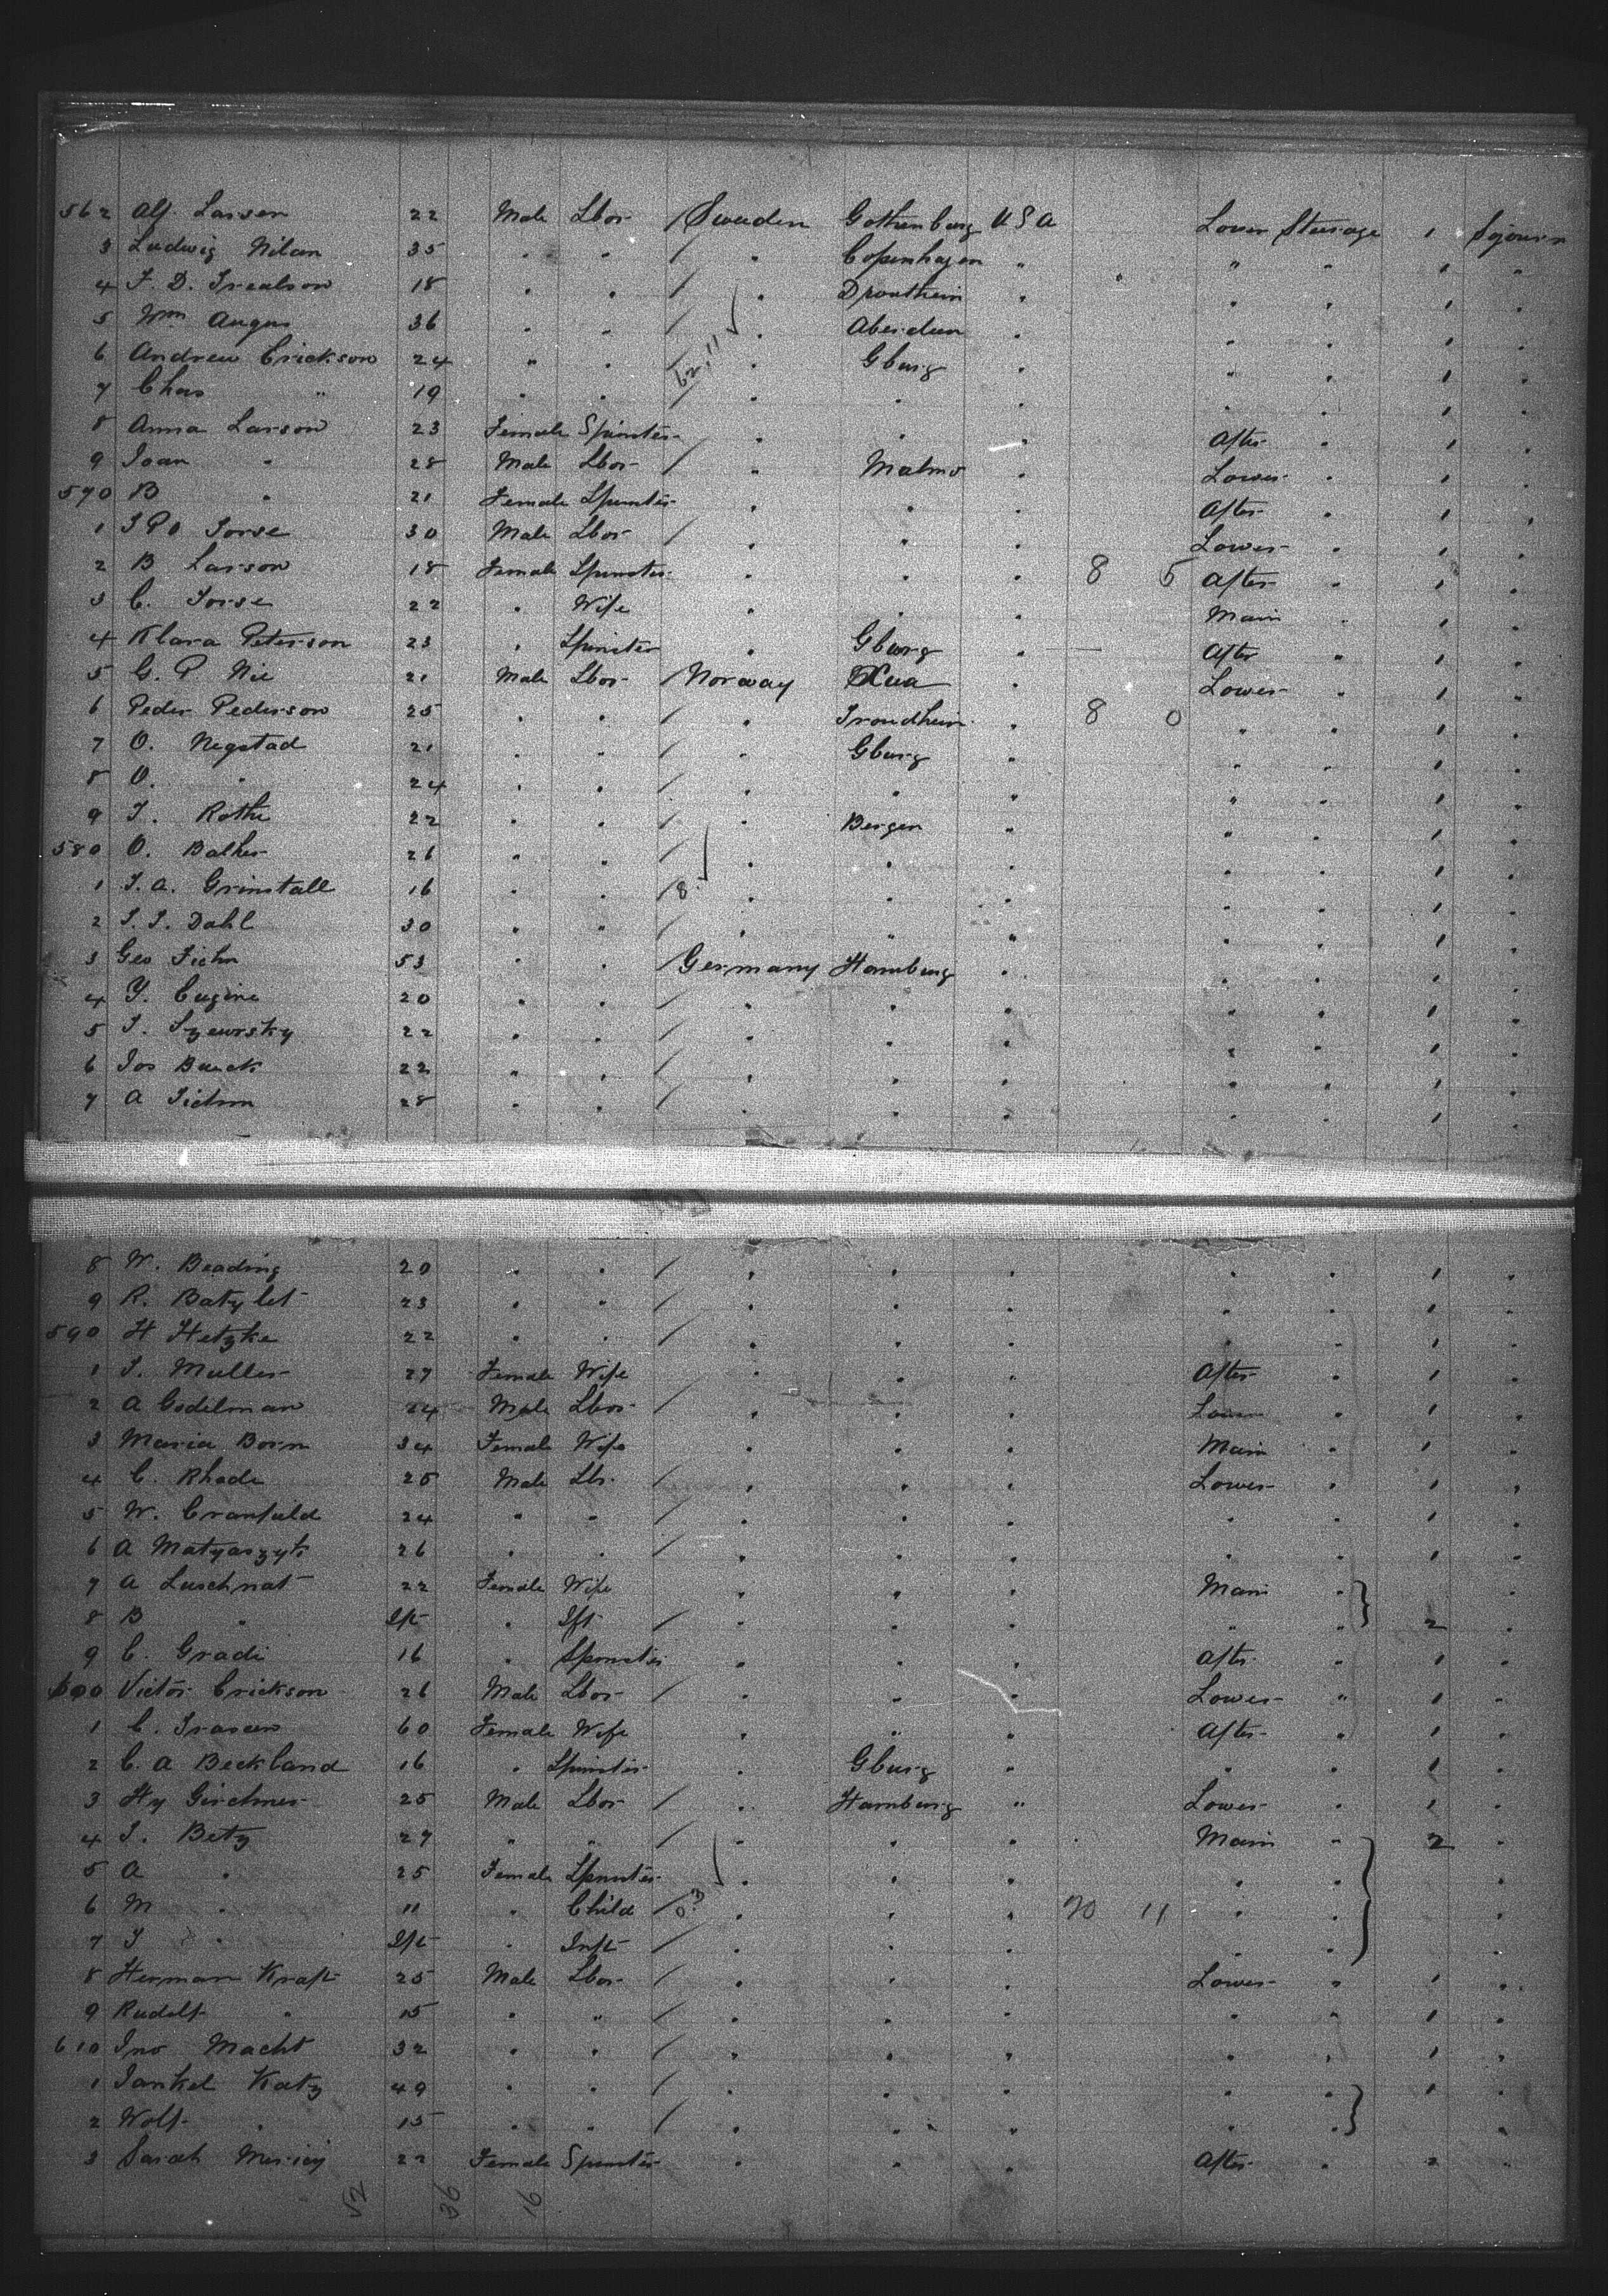 562 Alf. Larsen 22 Male Lbor / Sweden Gothenburg U S A Lower Steerage 1 Sojourn
3 Ludwig Nilan 35 " " / " Copenhagen " " " 1 "
4 F. D. 18 " " / " Drontheim " " " 1 "
5 Wm Angus 36 " " / " Aberdeen " " " 1 "
6 Andrew Erickson 24 " " / " Gburg " " " 1 "
7 Chas " 19 " " / " " " " " 1 "
8 Anna Larson 23 Female Spinster " " " After " 1 "
9 Joan " 28 Male Lbor / " Malmo " Lower " 1 "
570 B " 21 Female Spinster " " " After " 1 "
1 Jorse 30 Male Lbor / " " " Lower " 1 "
2 B Larson 18 Female Spinster " " " 8 5 After " 1 "
3 C. Jorse 22 " Wife " " " Main " 1 "
4 Klara Peterson 23 " Spinster " Gburg " After " 1 "
5 G. P. Nie 21 Male Lbor / Norway " Lower " 1 "
6 Peder Pederson 25 " " / " Trondheim " 8 0 " " 1 "
7 O. Negstad 21 " " / " Gburg " " " 1 "
8 O. " 24 " " / " " " " " 1 "
9 J. Rothe 22 " " / " Bergen " " " 1 "
580 O. Balker 26 " " / " " " " " 1 "
1 J. A. Grinstall 16 " " / 8 " " " " " 1 "
2 J. J. Dahl 30 " " / " " " " " 1 "
3 Geo Fichn 53 " " / Germany Hamburg " " " 1 "
4 Y. Eugine 20 " " / " " " " " 1 "
5 J. Szewsky 22 " " / " " " " " 1 "
6 Jos Buack 22 " " / " " " " " 1 "
7 A 28 " " / " " " " " 1 "
8 W. Beading 20 " " / " " " " " 1 "
9 R. Batylet 23 " " / " " " " " 1 "
590 H Hetzke 22 " " / " " " " " 1 "
1 J. Muller 27 Female Wife " " " After " 1 "
2 A Godelman 24 Male Lbor / " " " Lower " 1 "
3 Maria Born 34 Female Wife " " " Main " 1 "
4 C. Rhode 25 Male Lbr / " " " Lower " 1 "
5 W. Cranfield 24 " " / " " " " " 1 "
6 A Matyaszyk 26 " " / " " " " " 1 "
7 A Luschnat 22 Female Wife " " " Main " "
8 B " Ift " Ift / " " " " " 2 "
9 C. Gradi 16 " Spinster " " " After " 1 "
600 Victor Erickson 26 Male Lbor / " " " Lower " 1 "
1 C. 60 Female Wife " " " After " 1 "
2 C. A Beckland 16 " Spinster " Gburg " " " 1 "
3 Hy Girchner 25 Male Lbor / " Hamburg " Lower " 1 "
4 J. Betz 27 " " / " " " Main " 2 "
5 A " 25 Female Spinster " " " " " "
6 M " 11 " Child / " " " 20 11 " " "
7 J " Ift " Inft / " " " " " "
8 Herman Kraft 25 Male Lbor / " " " Lower " 1 "
9 Rudolf " 15 " " / " " " " " 1 "
610 Jno Macht 32 " " / " " " " " 1 "
1 Jankel Katz 49 " " / " " " " " 1 "
2 Wolf " 15 " " / " " " " " "
3 Sarah 22 Female Spinster " " " After " 2 "
52 36 16